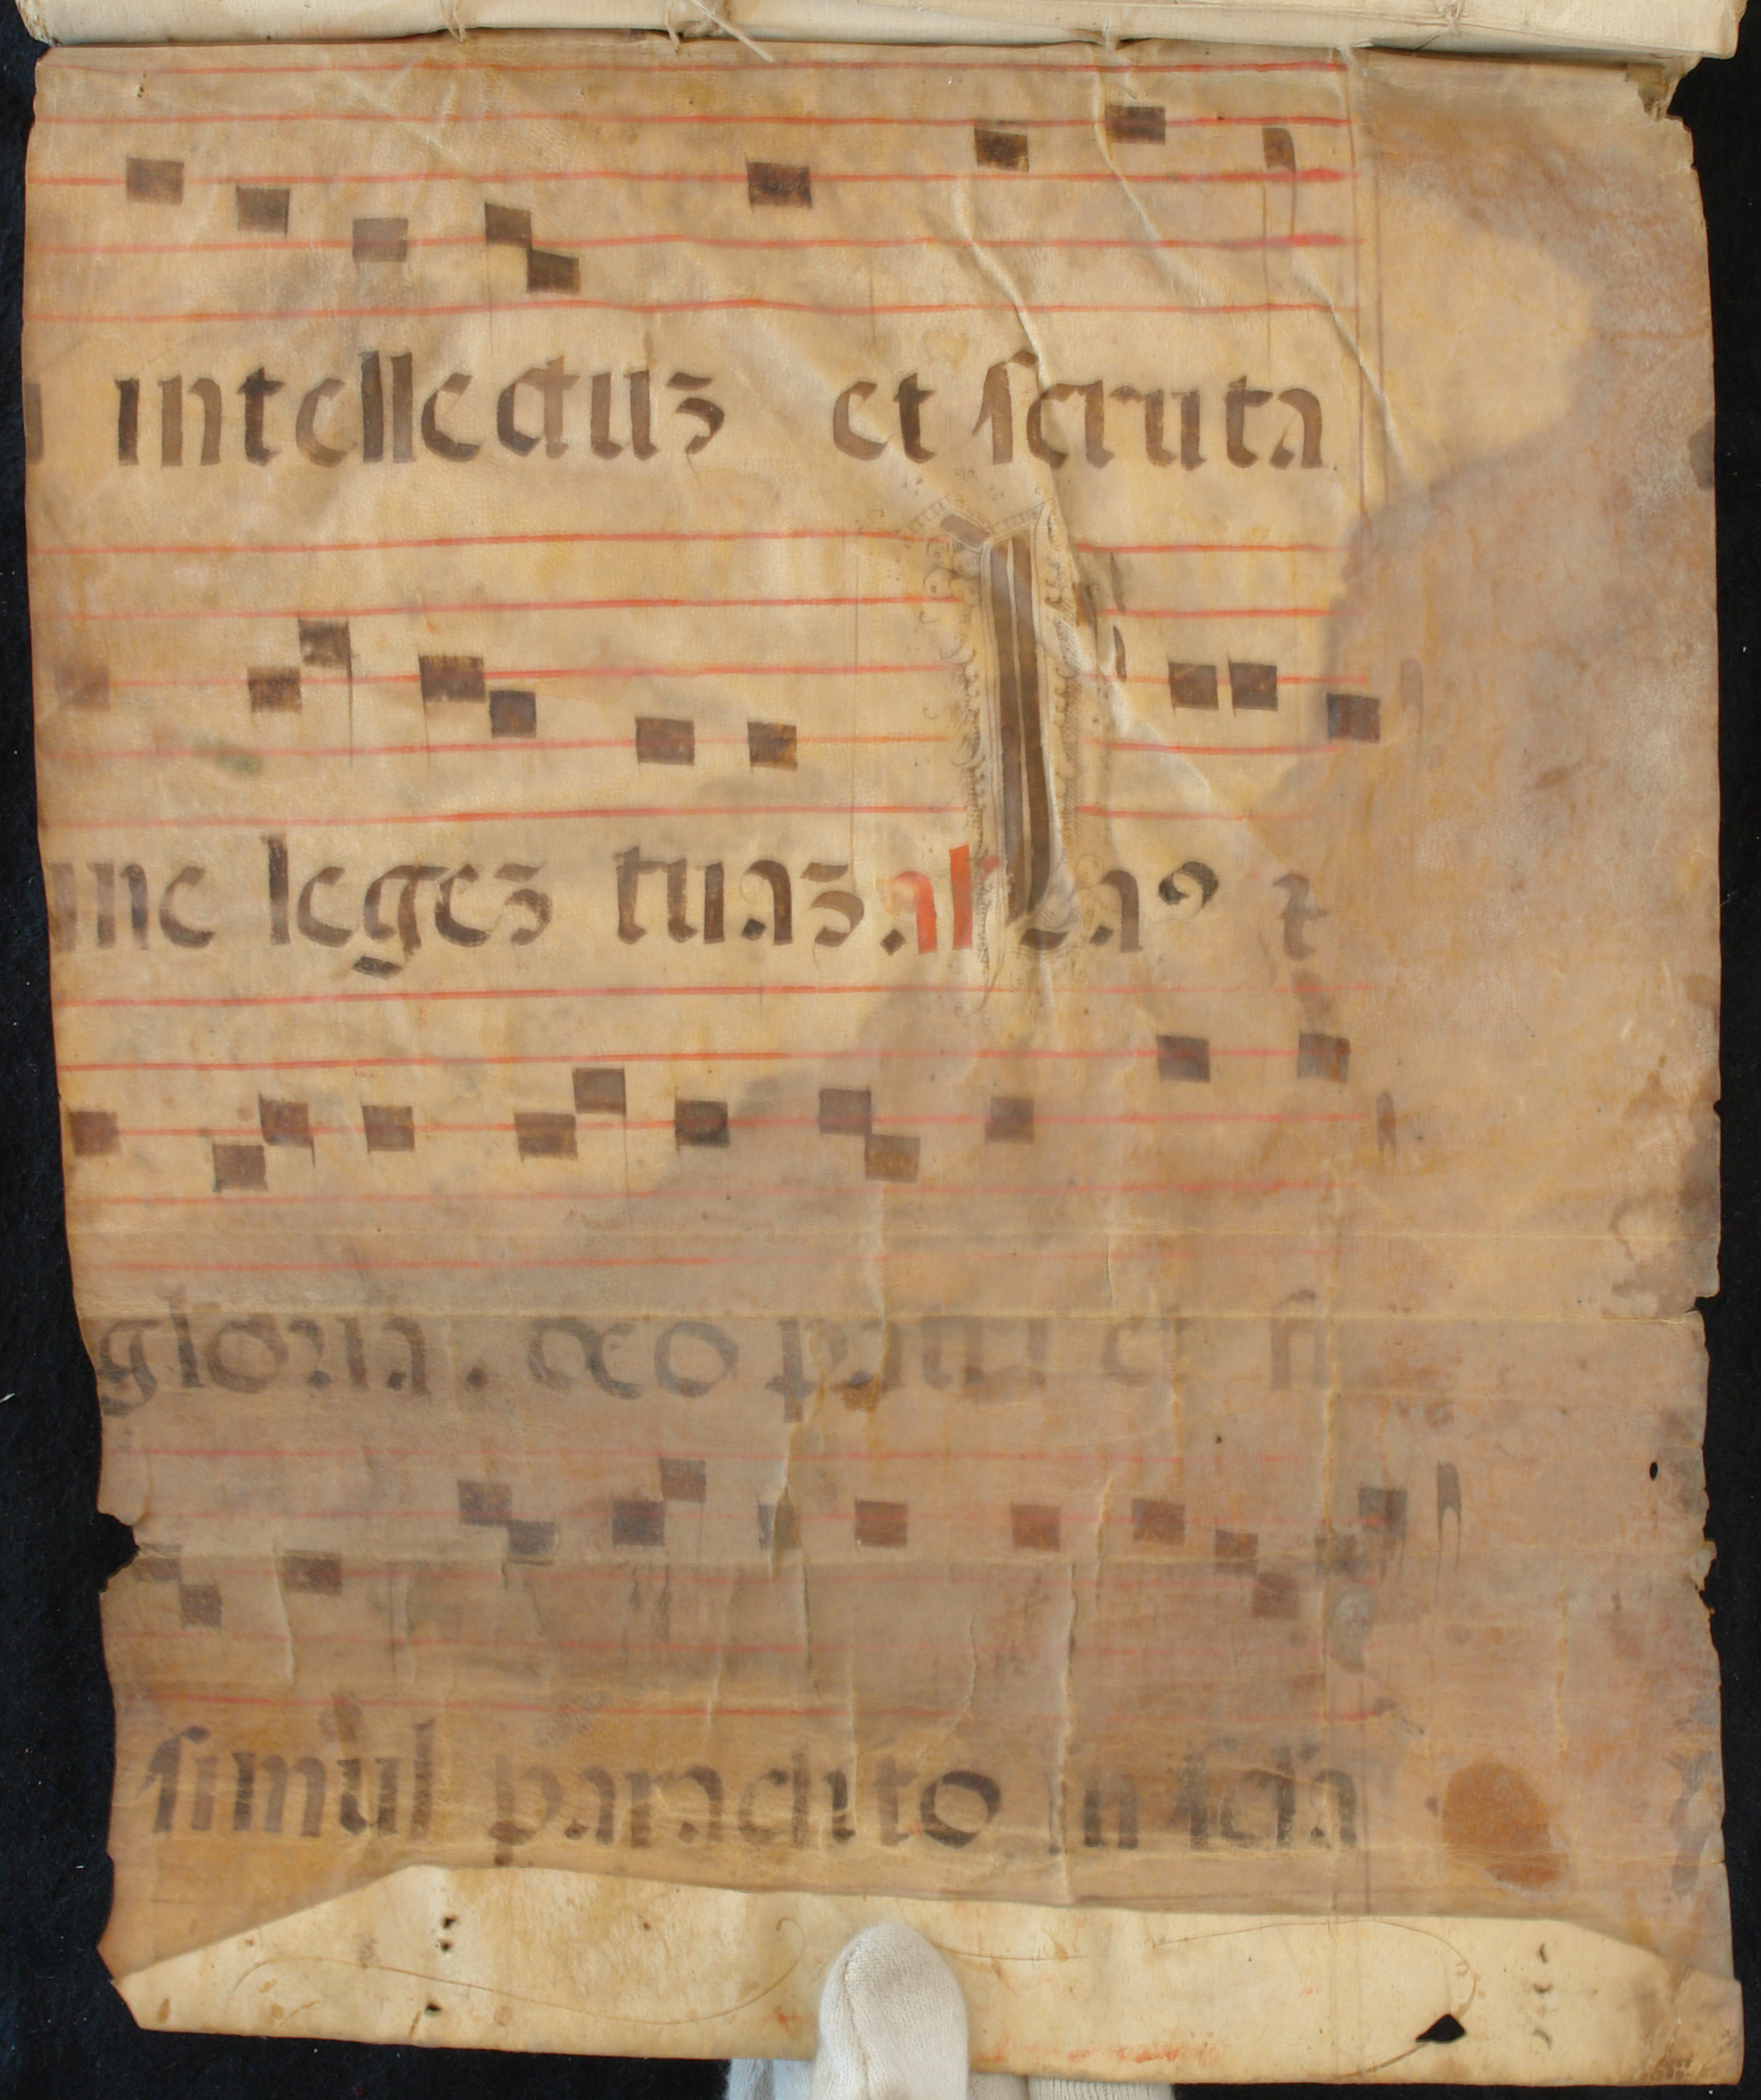 intellectuʒ et scruta
ne legeʒ tuaʒ. al Laꝰ ⁊
gloria. deo patri et fi
simul paraclito in sclā